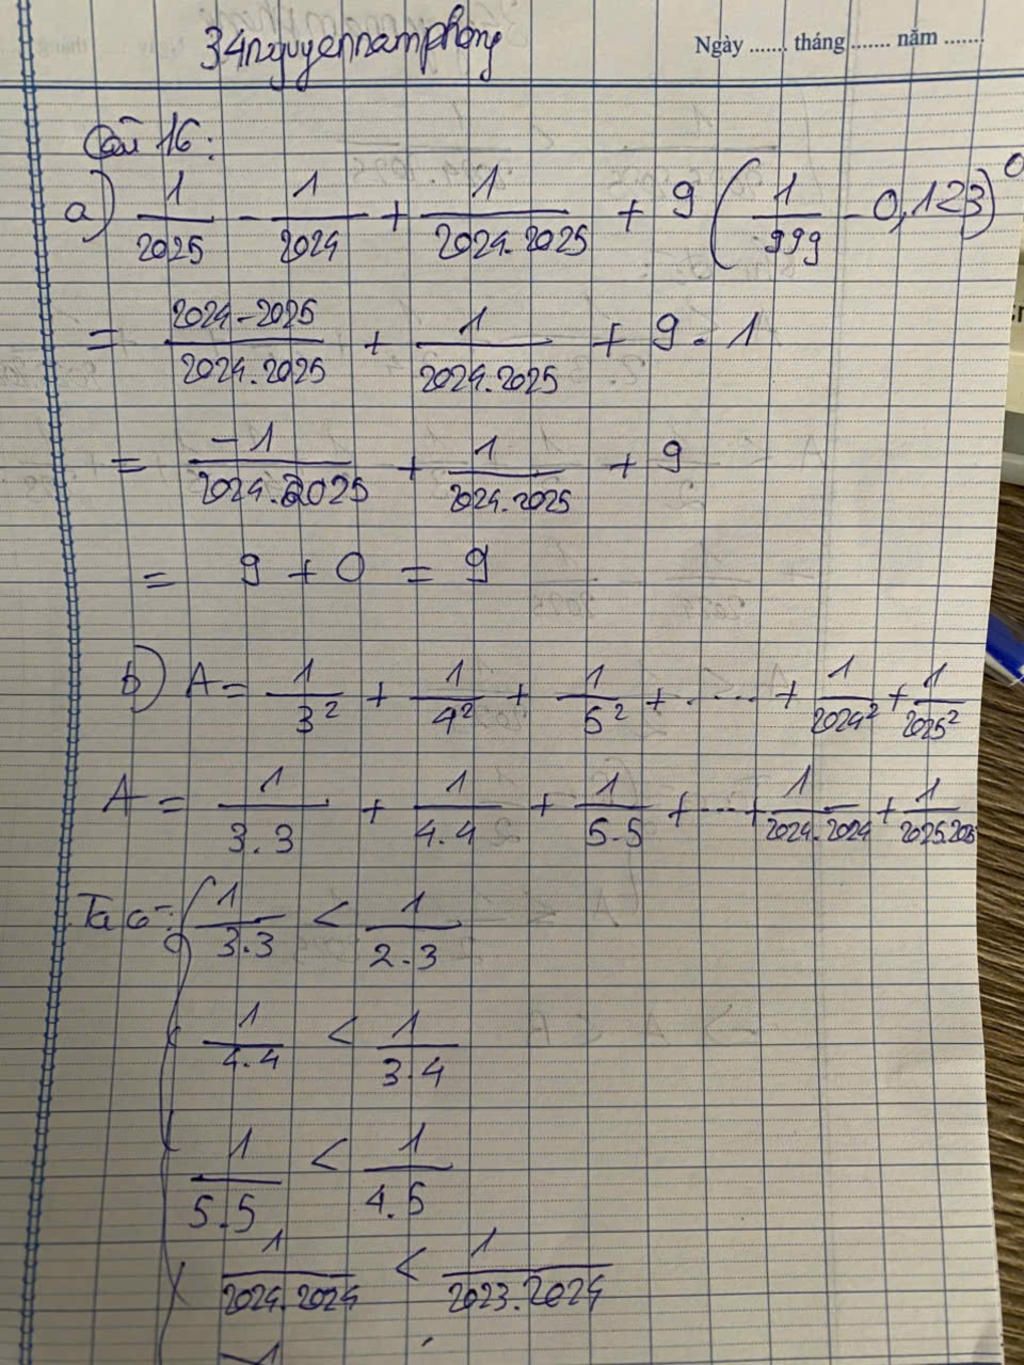 34nguyennamphong
Ngày ....... tháng ....... năm .......
Câu 16:
a) 1/2025 - 1/2024 + 1/2024.2025 + 9 (1/999 - 0,123)^0
= 2024-2025/2024.2025 + 1/2024.2025 + 9.1
= -1/2024.2025 + 1/2024.2025 + 9
= 9 + 0 = 9
b) A = 1/3² + 1/4² + 1/5² + ..... + 1/2024² + 1/2025²
A = 1/3.3 + 1/4.4 + 1/5.5 + ... + 1/2024.2024 + 1/2025.2025
Ta có: 1/3.3 < 1/2.3
1/4.4 < 1/3.4
1/5.5 < 1/4.5
1/2024.2024 < 1/2023.2024